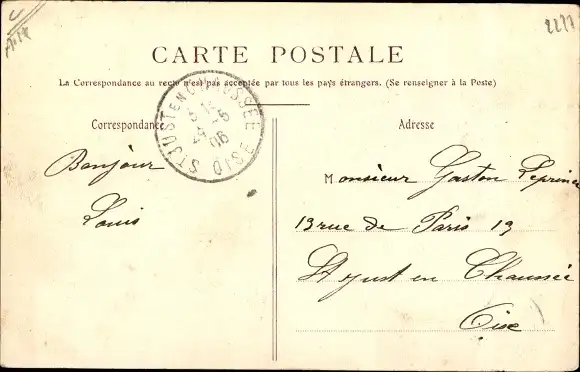 2277
CARTE POSTALE
La Correspondance au recto n'est pas acceptée par tous les pays étrangers. (Se renseigner à la Poste)
Correspondance
Adresse
ST JUST EN CHAUSSEE OISE
06
Bonjour
Louis
Monsieur Gaston Leprince
13 rue de Paris 13
St just en Chaussée
Oise